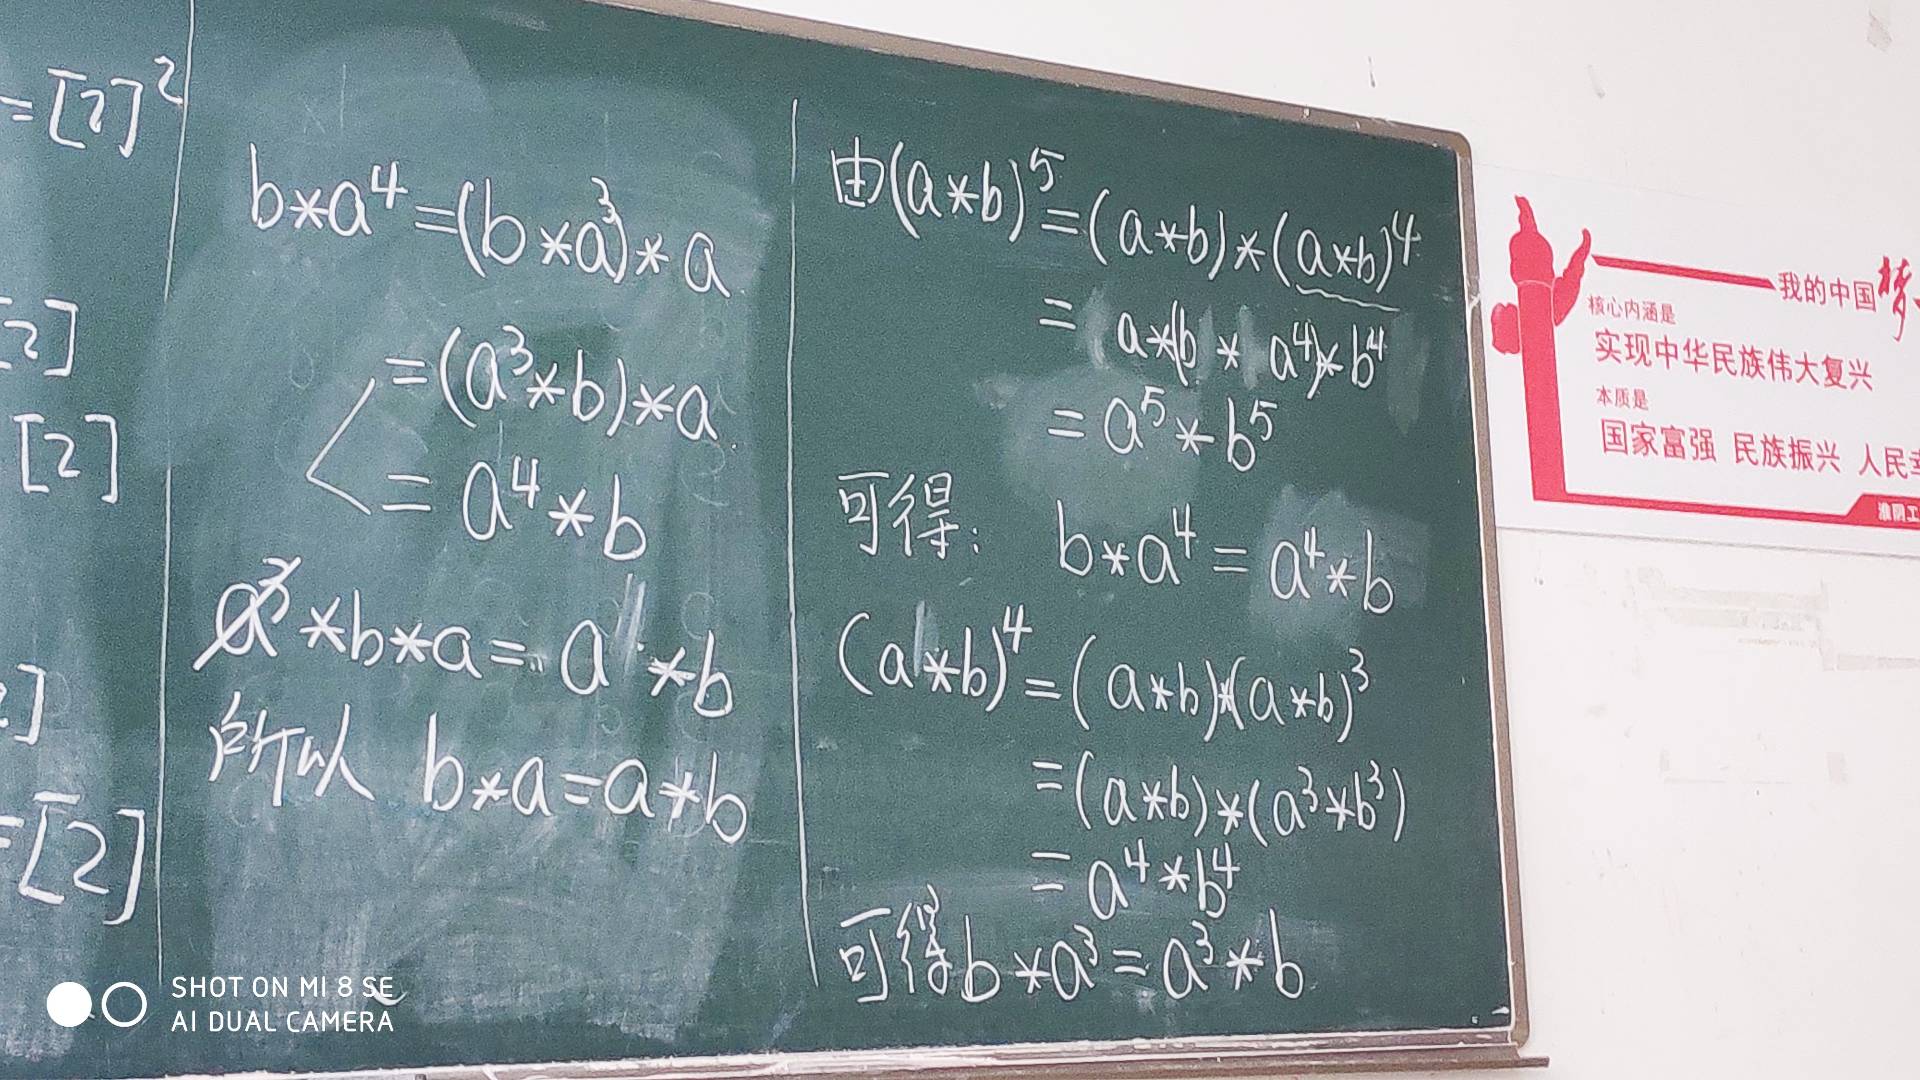 = [2]²
[2]
[2]
]
= [2]
b*a⁴=(b*a³)*a
=(a³*b)*a
= a⁴*b
a³*b*a= a *b
所以 b*a=a*b
由(a*b)⁵=(a*b)*(a*b)⁴
= a*(b * a⁴)*b⁴
= a⁵*b⁵
可得: b*a⁴=a⁴*b
(a*b)⁴=(a*b)*(a*b)³
=(a*b)*(a³*b³)
= a⁴*b⁴
可得b*a³=a³*b
我的中国梦
核心内涵是
实现中华民族伟大复兴
本质是
国家富强 民族振兴 人民幸
淮阴工
SHOT ON MI 8 SE
AI DUAL CAMERA